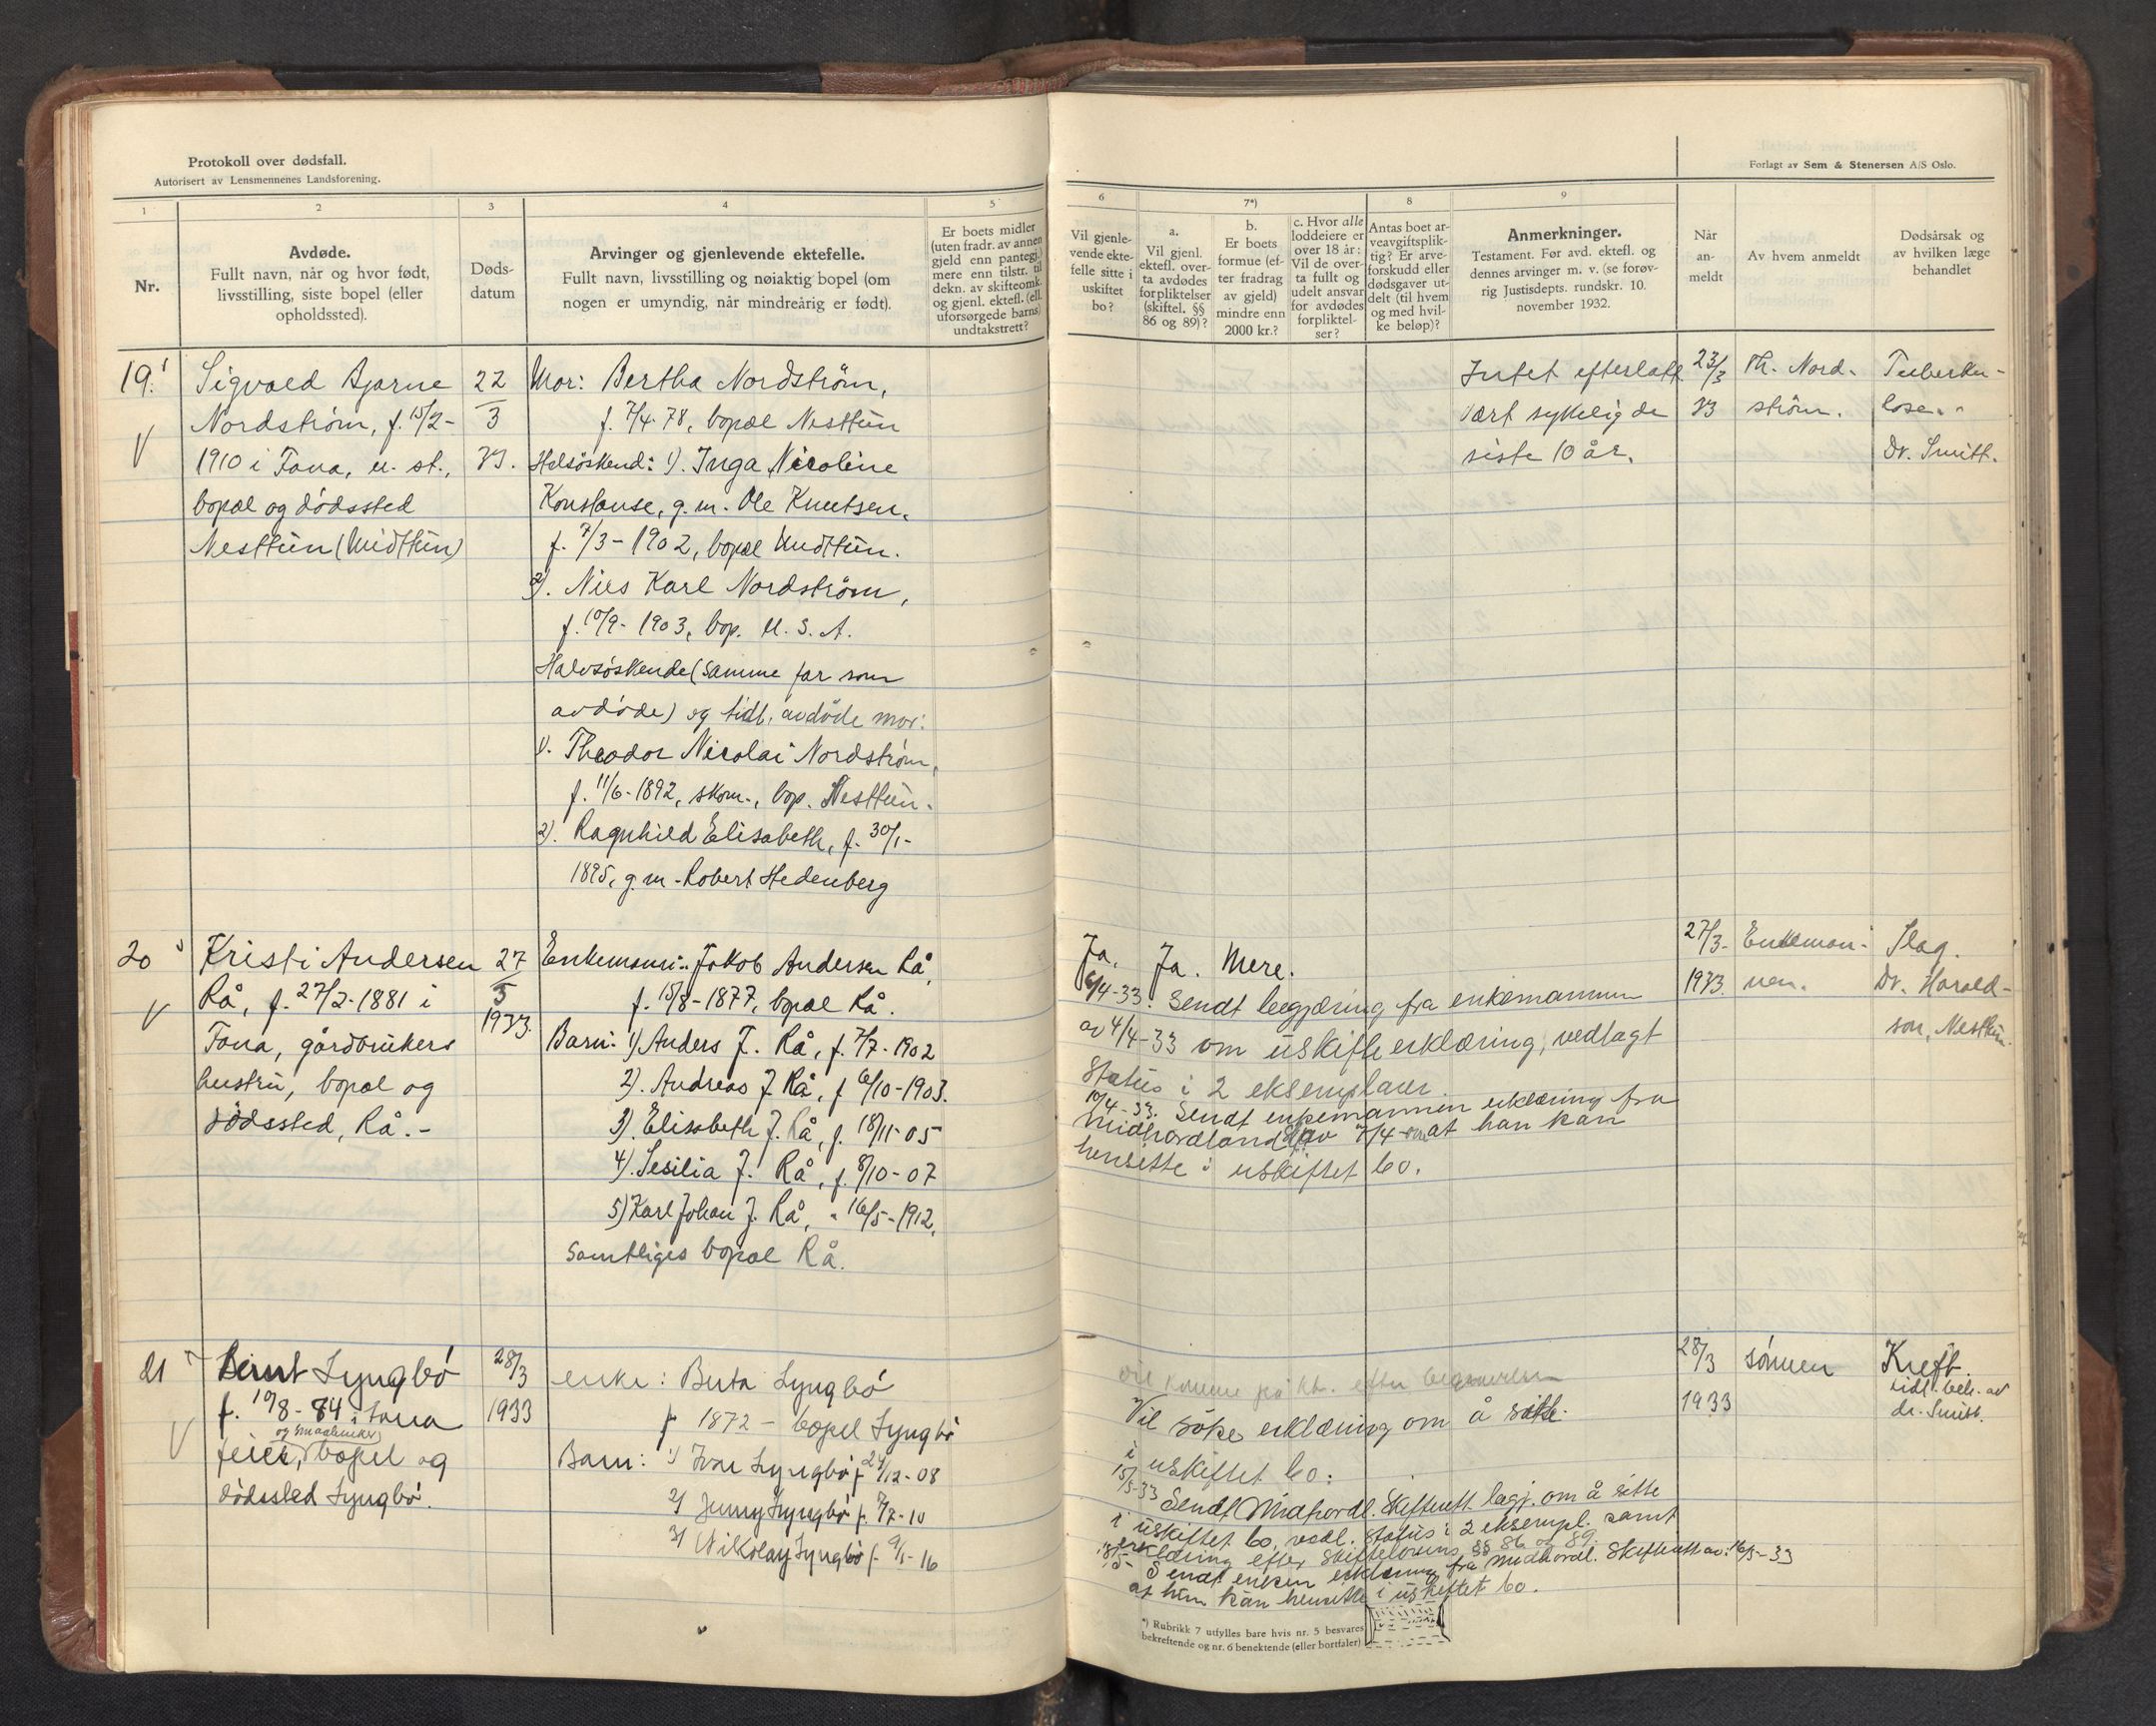 Protokoll over dødsfall.
Autorisert av Lensmennenes Landsforening.
1
2
3
4
5
Nr.
Avdøde.
Fullt navn, når og hvor født,
livsstilling, siste bopel (eller
opholdssted).
Døds-
datum
Arvinger og gjenlevende ektefelle.
Fullt navn, livsstilling og nøiaktig bopel (om
nogen er umyndig, når mindreårig er født).
Er boets midler
(uten fradr. av annen
gjeld enn pantegj.)
mere enn tilstr. til
dekn. av skifteomk.
og gjenl. ektefl. (ell.
uforsørgede barns)
undtakstrett?
19.
Sigvald Bjarne
Nordström, f. 15/2-
1910 i Fana, u. st.,
bopæl og dödssted
Nesttun (Midttun)
22
3
33.
Mor: Bertha Nordström,
f. 7/4-78, bopæl Nesttun
Helsöskend: 1). Inga Nicoline
Konstanse, g.m. Ole Knutsen,
f. 7/3-1902, bopæl Midttun.
2). Nils Karl Nordström,
f. 10/9-1903, bop. U. S. A.
Halvsöskende (samme far som
avdöde) og tidl. avdöde mor:
1). Theodor Nicolai Nordström,
f. 11/6-1892, skom., bop. Nesttun.
2). Ragnhild Elisabeth, f. 30/1-
1895, g.m. Robert Hedenberg
20
Kristi Andersen
Rå, f. 27/2-1881 i
Fana, gårdbrukers
hustru, bopæl og
dödssted, Rå.-
27
3
1933.
Enkemann: Jakob Andersen Rå,
f. 15/8-1877, bopæl Rå.
Barn: 1) Anders J. Rå, f. 7/7-1902
2). Andreas J. Rå, f 6/10-1903.
3). Elisabeth J. Rå, f. 18/11-05
4). Sesilia J. Rå, f. 8/10-07
5) Karl Johan J. Rå, " 16/5-1912.
Samtliges bopæl Rå.
21
Bernt Lyngbö
f. 10/8-84 i Fana
og maskinist
feier, bopel og
dödssted Lyngbö.
28/3
1933
enke: Berta Lyngbö
f 1872 - bopel Lyngbö
Barn: 1) Ivar Lyngbö f 24/12-08
2) Jenny Lyngbö f. 7/7-10
3) Nikolay Lyngbö f. 9/1-16
Forlagt av Sem & Stenersen A/S Oslo.
6
7*)
8
9
Vil gjenle-
vende ekte-
felle sitte i
uskiftet
bo?
a.
Vil gjenl.
ektefl. over-
ta avdødes
forpliktelser
(skiftel. §§
86 og 89)?
b.
Er boets
formue (ef-
ter fradrag
av gjeld)
mindre enn
2000 kr.?
c. Hvor alle
loddeiere er
over 18 år:
Vil de over-
ta fullt og
udelt ansvar
for avdødes
forpliktel-
ser?
Antas boet ar-
veavgiftsplik-
tig? Er arve-
forskudd eller
dødsgaver ut-
delt (til hvem
og med hvil-
ke beløp)?
Anmerkninger.
Testament. Før avd. ektefl. og
dennes arvinger m. v. (se forøv-
rig Justisdepts. rundskr. 10.
november 1932.
Når
an-
meldt
Av hvem anmeldt
Dødsårsak og
av hvilken læge
behandlet
Intet efterlatt.
Vært sykelig de
siste 10 år.
23/3
33
Th. Nord-
ström.
Tuberku-
lose.
Dr. Smitt.
Ja. Ja. Mere.
6/4-33. Sendt begjæring fra enkemannen
av 4/4-33 om uskifteerklæring, vedlagt
status i 2 eksemplarer.
10/4-33. Sendt enkemannen erklæring fra
Midhordland av 7/4 om at han kan
hensitte i uskiftet bo.
27/3-
1933.
Enkeman-
nen.
Slag.
Dr. Harald-
son, Nesttun.
vil komme på kt. efter begravelsen
Vil söke erklæring om å sitte
i uskiftet bo.
15/5-33 Sendt Midhordl. Skifterett begj. om å sitte
i uskiftet bo, vedl. status i 2 eksempl. samt
erklæring efter Skiftelovens §§ 86 og 89.
18/5 Sendt enken erklæring fra Midhordl. Skifterett av 16/5-33
at hun kan hensitte i uskiftet bo.
28/3
1933
sönnen
Kreft
tidl. beh. av
dr. Smitt.
*) Rubrikk 7 utfylles bare hvis nr. 5 besvares
bekreftende og nr. 6 benektende (eller bortfaler)